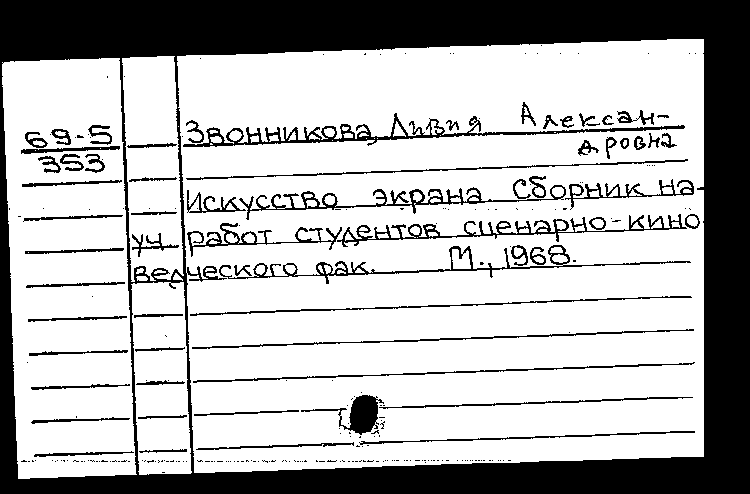 69-5
353
Звонникова, Ливия Алексан-
дровна
Искусство экрана. Сборник на-
уч. работ студентов сценарно-кино
ведческого фак. М., 1968.